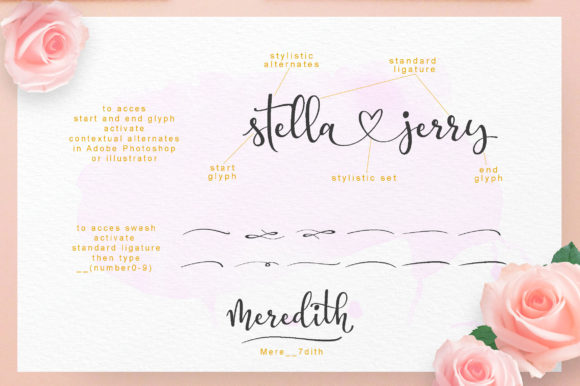 stylistic
alternates
standard
ligature
to acces
start and end glyph
activate
contextual alternates
in Adobe Photoshop
or illustrator
stella jerry
start
glyph
stylistic set
end
glyph
to acces swash
activate
standard ligature
then type
__(number0-9)
meredith
Mere__7dith